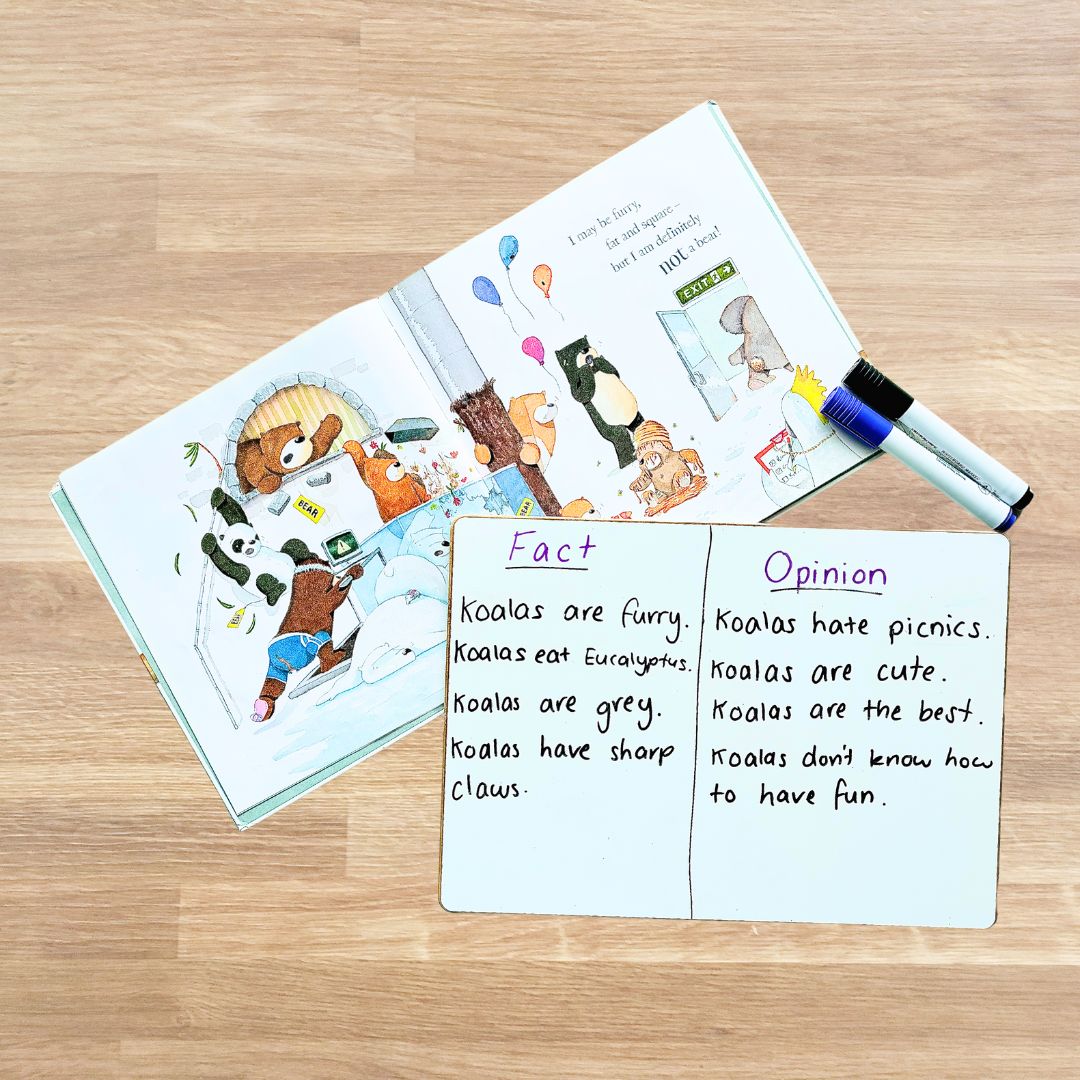 I may be furry,
fat and square –
but I am definitely
not a bear!
EXIT
BEAR
BEAR
Fact
Koalas are furry.
Koalas eat Eucalyptus.
Koalas are grey.
Koalas have sharp
claws.
Opinion
Koalas hate picnics.
Koalas are cute.
Koalas are the best.
Koalas don't know how
to have fun.